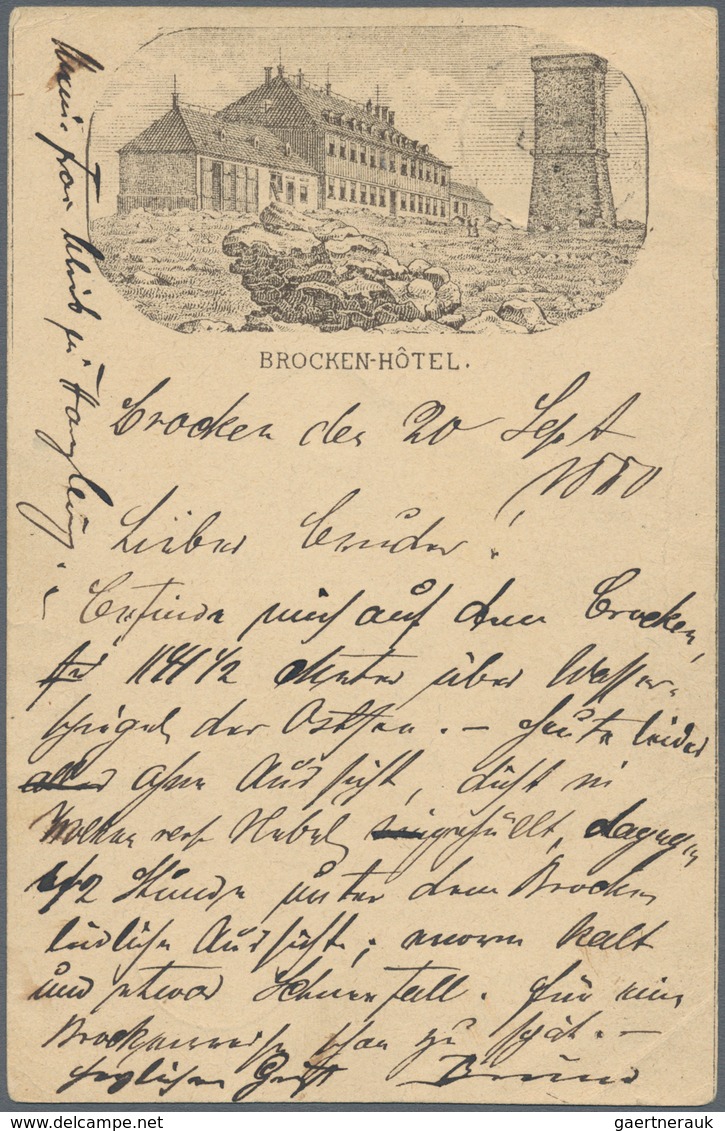 BROCKEN-HÔTEL.
Brocken den 20 Sept
1880
Lieber Bruder!
Befinde mich auf dem Brocken,
1141 1/2 Meter über Wasser-
spiegel der Ostsee. – Heute leider
ohne Aussicht, dicht in
Wolken resp Nebel eingehüllt, dagegen
1/2 Stunde unter dem Brocken
leidliche Aussicht; enorm kalt
und etwas Schneefall. Für eine
Brockenreise schon zu spät. –
herzlichen Gruß Bruno
gaertnerauk